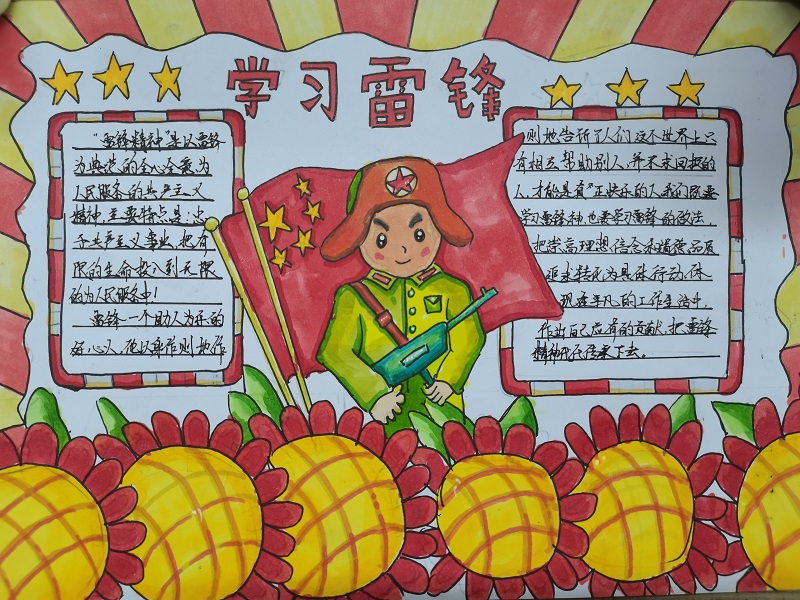 学习雷锋
"雷锋精神"是以雷锋
为典范的全心全意为
人民服务的共产主义
精神,主要特点是:忠
于共产主义事业,把有
限的生命投入到无限
的为人民服务中!
雷锋,一个助人为乐的
好心人,他以身作则地作
则地告诉了人们这个世界上只
有相互帮助别人,并不求回报的
人,才能是真"正快乐的人我们既要
学习雷锋神,也要学习雷锋的做法,
把崇高理想信念和道德品质
追求转化为具体行动,体
现在平凡的工作生活中,
作出自己应有的贡献,把雷锋
精神代代传承下去。